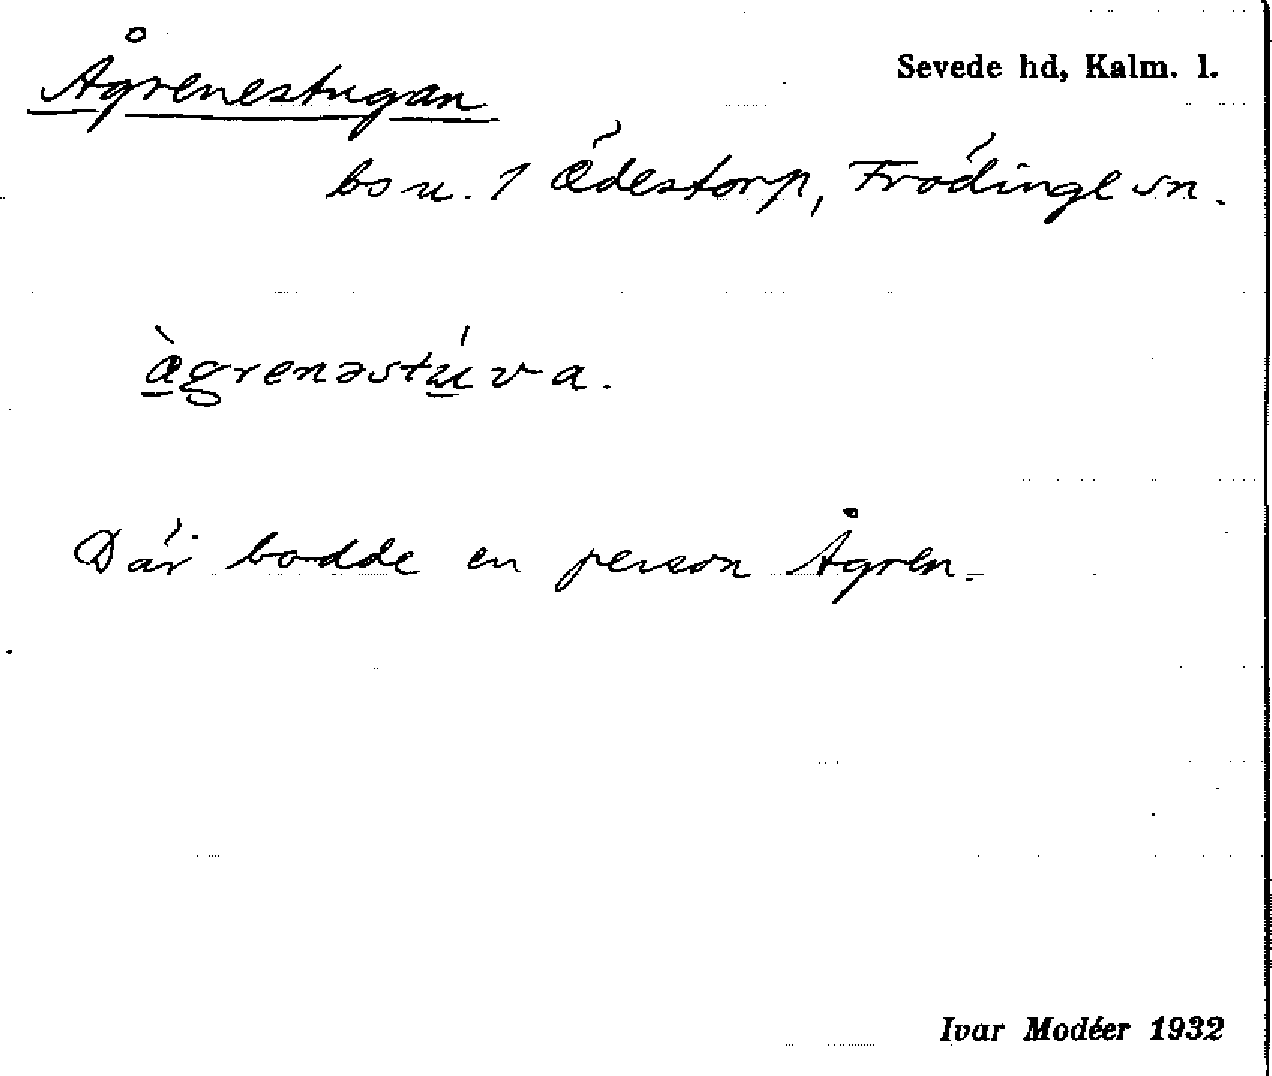 Ågrenestugan
Sevede hd, Kalm. l.
bs u. 1 Ödestorp, Frödinge sn.
ågrenəstúva.
Där bodde en person Ågren.
Ivar Modéer 1932